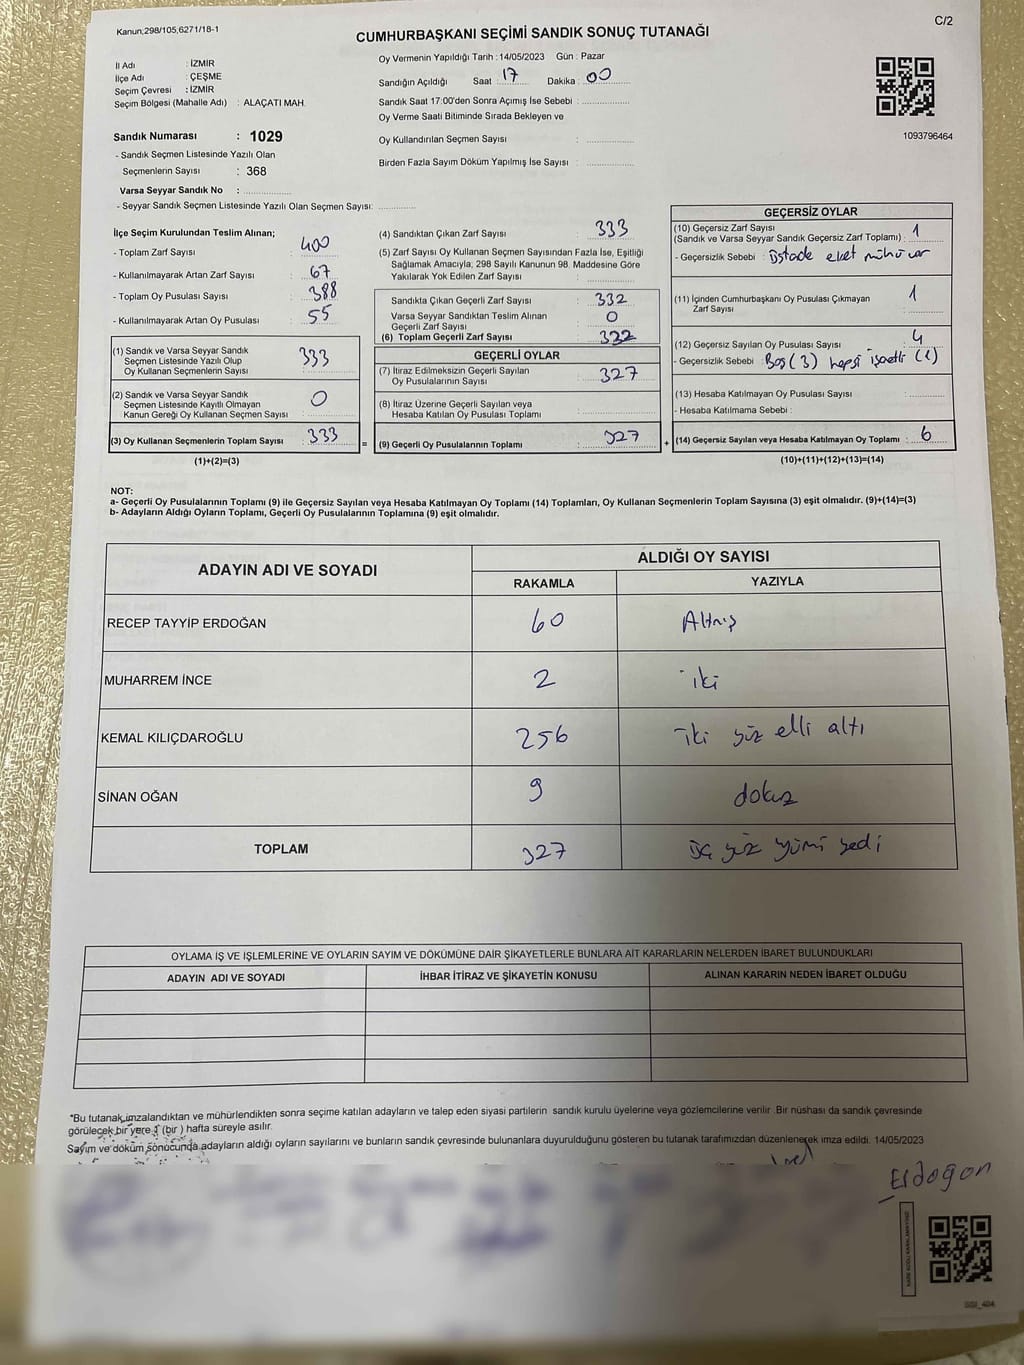 Kanun,298/105,6271/18-1
C/2
CUMHURBAŞKANI SEÇİMİ SANDIK SONUÇ TUTANAĞI
İl Adı : İZMİR
İlçe Adı : ÇEŞME
Seçim Çevresi : İZMİR
Seçim Bölgesi (Mahalle Adı) : ALAÇATI MAH.
Sandık Numarası : 1029
- Sandık Seçmen Listesinde Yazılı Olan
Seçmenlerin Sayısı : 368
Varsa Seyyar Sandık No :
- Seyyar Sandık Seçmen Listesinde Yazılı Olan Seçmen Sayısı:
Oy Vermenin Yapıldığı Tarih : 14/05/2023 Gün : Pazar
Sandığın Açıldığı Saat : 17 Dakika : 00
Sandık Saat 17:00'den Sonra Açımış İse Sebebi :
Oy Verme Saati Bitiminde Sırada Bekleyen ve
Oy Kullandırılan Seçmen Sayısı :
Birden Fazla Sayım Döküm Yapılmış İse Sayısı :
1093796464
İlçe Seçim Kurulundan Teslim Alınan;
- Toplam Zarf Sayısı : 400
- Kullanılmayarak Artan Zarf Sayısı : 67
- Toplam Oy Pusulası Sayısı : 388
- Kullanılmayarak Artan Oy Pusulası : 55
(1) Sandık ve Varsa Seyyar Sandık
Seçmen Listesinde Yazılı Olup
Oy Kullanan Seçmenlerin Sayısı : 333
(2) Sandık ve Varsa Seyyar Sandık
Seçmen Listesinde Kayıtlı Olmayan
Kanun Gereği Oy Kullanan Seçmen Sayısı : 0
(3) Oy Kullanan Seçmenlerin Toplam Sayısı : 333
(1)+(2)=(3)
=
(4) Sandıktan Çıkan Zarf Sayısı : 333
(5) Zarf Sayısı Oy Kullanan Seçmen Sayısından Fazla İse, Eşitliği
Sağlamak Amacıyla; 298 Sayılı Kanunun 98. Maddesine Göre
Yakılarak Yok Edilen Zarf Sayısı :
Sandıkta Çıkan Geçerli Zarf Sayısı : 332
Varsa Seyyar Sandıktan Teslim Alınan
Geçerli Zarf Sayısı : 0
(6) Toplam Geçerli Zarf Sayısı : 332
GEÇERLİ OYLAR
(7) İtiraz Edilmeksizin Geçerli Sayılan
Oy Pusulalarının Sayısı : 327
(8) İtiraz Üzerine Geçerli Sayılan veya
Hesaba Katılan Oy Pusulası Toplamı :
(9) Geçerli Oy Pusulalarının Toplamı : 327
+
GEÇERSİZ OYLAR
(10) Geçersiz Zarf Sayısı
(Sandık ve Varsa Seyyar Sandık Geçersiz Zarf Toplamı) : 1
- Geçersizlik Sebebi : üstade evet mühü var
(11) İçinden Cumhurbaşkanı Oy Pusulası Çıkmayan
Zarf Sayısı : 1
(12) Geçersiz Sayılan Oy Pusulası Sayısı : 4
- Geçersizlik Sebebi : Boş (3) hepsi işaretli (1)
(13) Hesaba Katılmayan Oy Pusulası Sayısı :
- Hesaba Katılmama Sebebi :
(14) Geçersiz Sayılan veya Hesaba Katılmayan Oy Toplamı : 6
(10)+(11)+(12)+(13)=(14)
NOT:
a- Geçerli Oy Pusulalarının Toplamı (9) ile Geçersiz Sayılan veya Hesaba Katılmayan Oy Toplamı (14) Toplamları, Oy Kullanan Seçmenlerin Toplam Sayısına (3) eşit olmalıdır. (9)+(14)=(3)
b- Adayların Aldığı Oyların Toplamı, Geçerli Oy Pusulalarının Toplamına (9) eşit olmalıdır.
ADAYIN ADI VE SOYADI
ALDIĞI OY SAYISI
RAKAMLA YAZIYLA
RECEP TAYYİP ERDOĞAN 60 Altmış
MUHARREM İNCE 2 iki
KEMAL KILIÇDAROĞLU 256 iki yüz elli altı
SİNAN OĞAN 9 dokuz
TOPLAM 327 üç yüz yirmi yedi
OYLAMA İŞ VE İŞLEMLERİNE VE OYLARIN SAYIM VE DÖKÜMÜNE DAİR ŞİKAYETLERLE BUNLARA AİT KARARLARIN NELERDEN İBARET BULUNDUKLARI
ADAYIN ADI VE SOYADI İHBAR İTİRAZ VE ŞİKAYETİN KONUSU ALINAN KARARIN NEDEN İBARET OLDUĞU
*Bu tutanak imzalandıktan ve mühürlendikten sonra seçime katılan adayların ve talep eden siyasi partilerin sandık kurulu üyelerine veya gözlemcilerine verilir .Bir nüshası da sandık çevresinde
görülecek bir yere 1 (bir ) hafta süreyle asılır.
Sayım ve döküm sonucunda adayların aldığı oyların sayılarını ve bunların sandık çevresinde bulunanlara duyurulduğunu gösteren bu tutanak tarafımızdan düzenlenerek imza edildi. 14/05/2023
Erdoğan